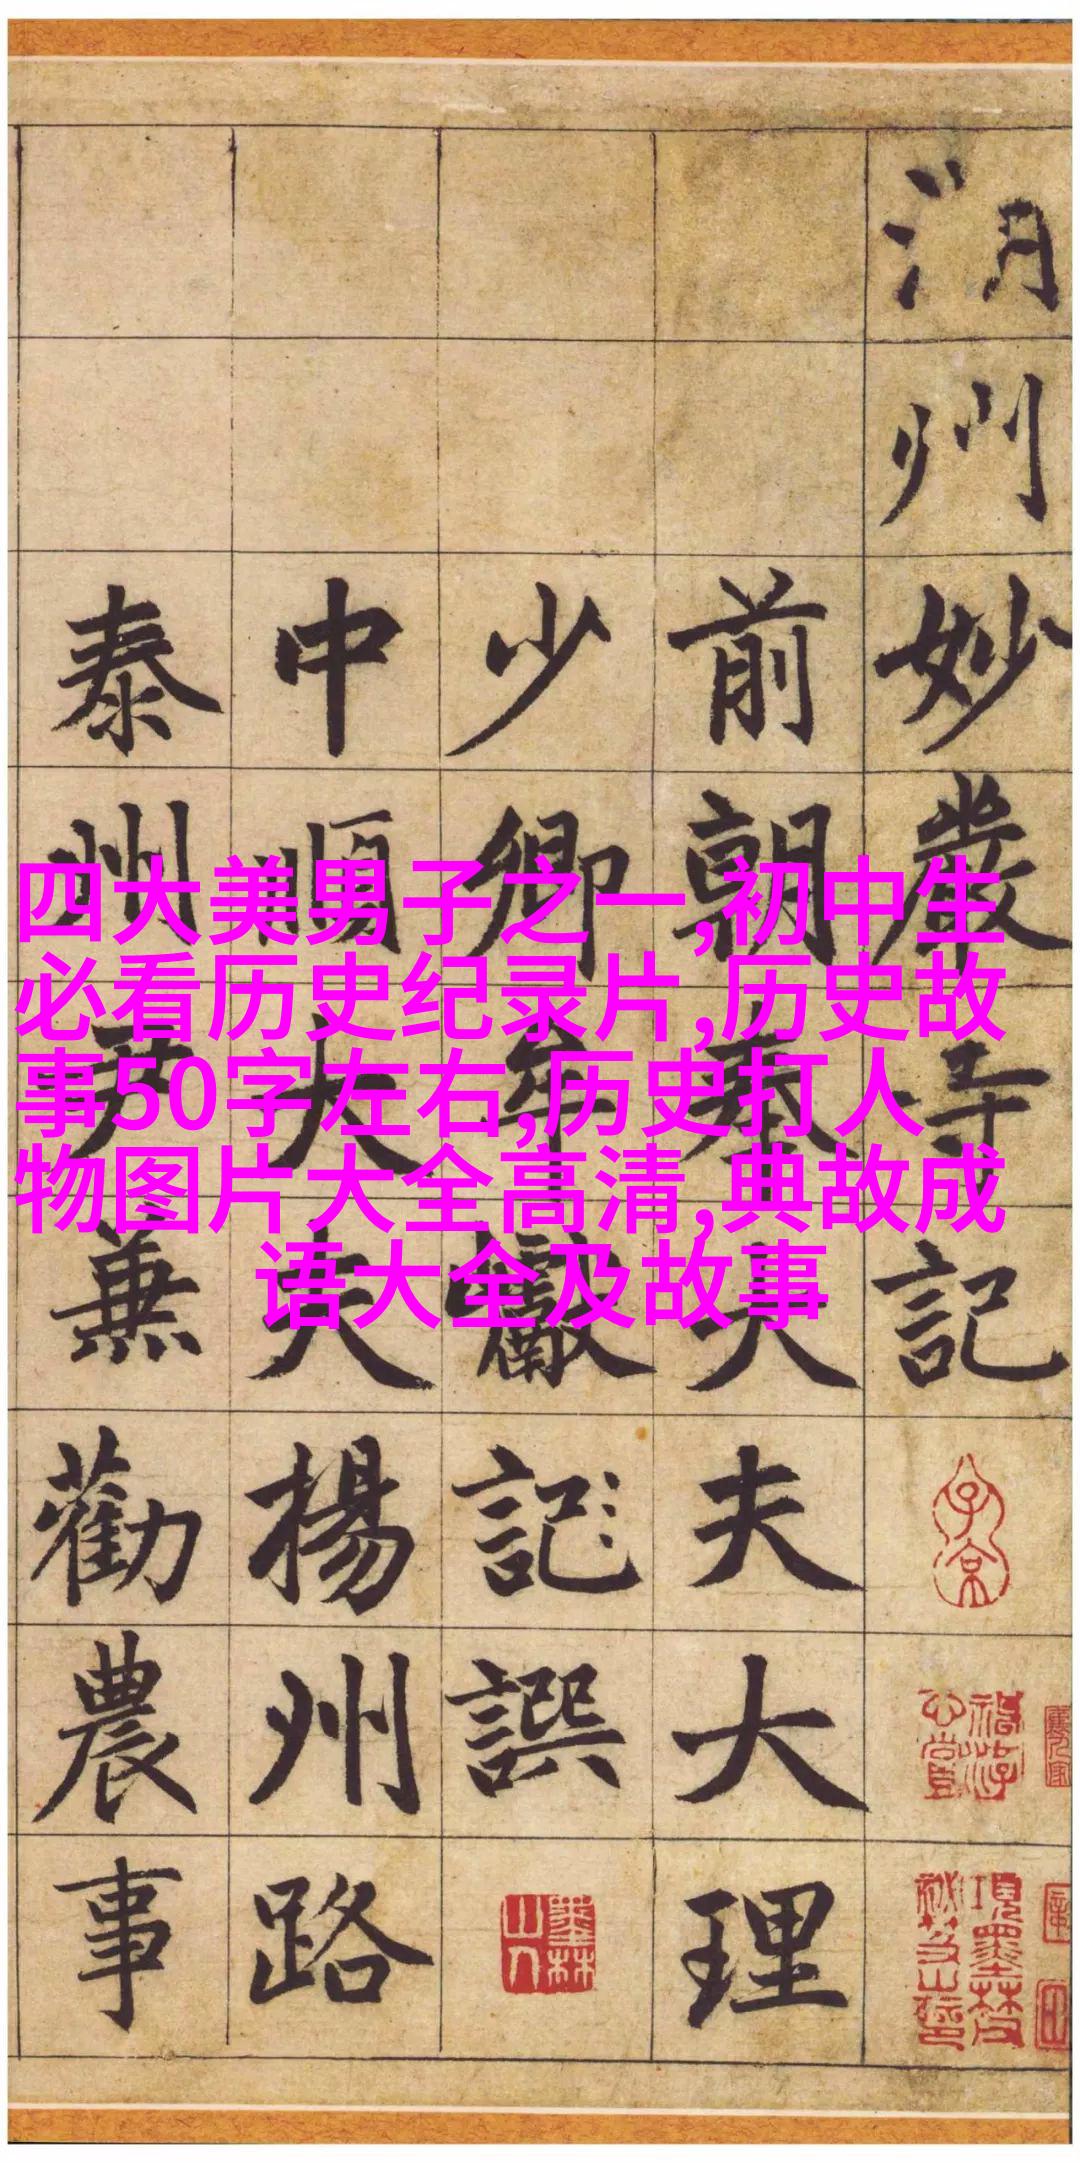 四大美男子之一,初中生
必看历史纪录片,历史故
事50字左右,历史打人
物图片大全高清,典故成
语大全及故事
湖州妙嚴寺記
子京
神游心賞
前朝奉大夫大理
少卿牟巘記譔
墨林山人
中順大夫揚州路
泰州尹兼勸農事